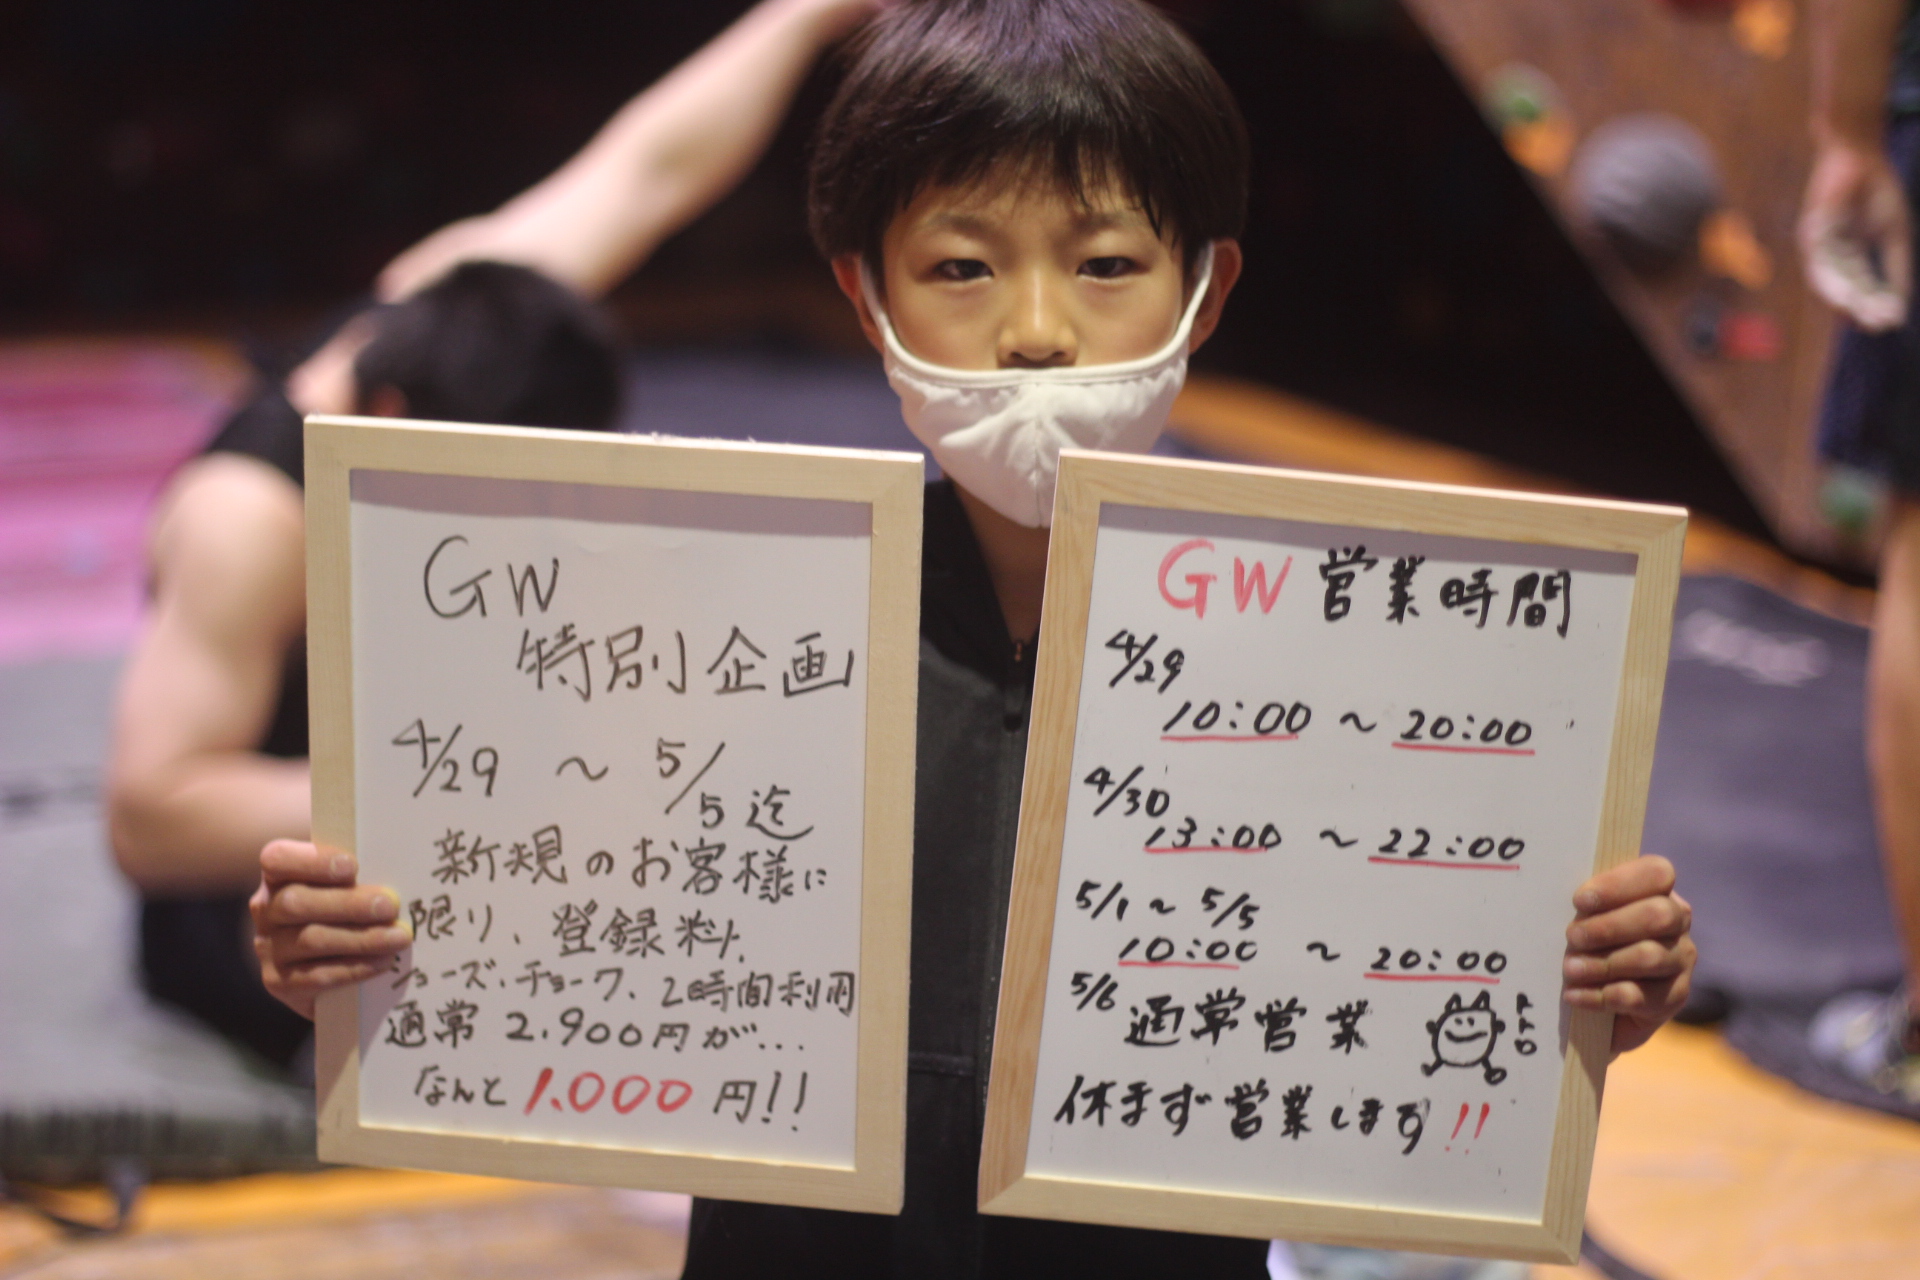 GW
特別企画
4/29 ～ 5/5 迄
新規のお客様に
限り、登録料、
シューズ、チョーク、2時間利用
通常 2.900円が...
なんと 1.000 円!!
GW 営業時間
4/29
10:00 ～ 20:00
4/30
13:00 ～ 22:00
5/1 ～ 5/5
10:00 ～ 20:00
5/6 通常営業
休まず営業します!!